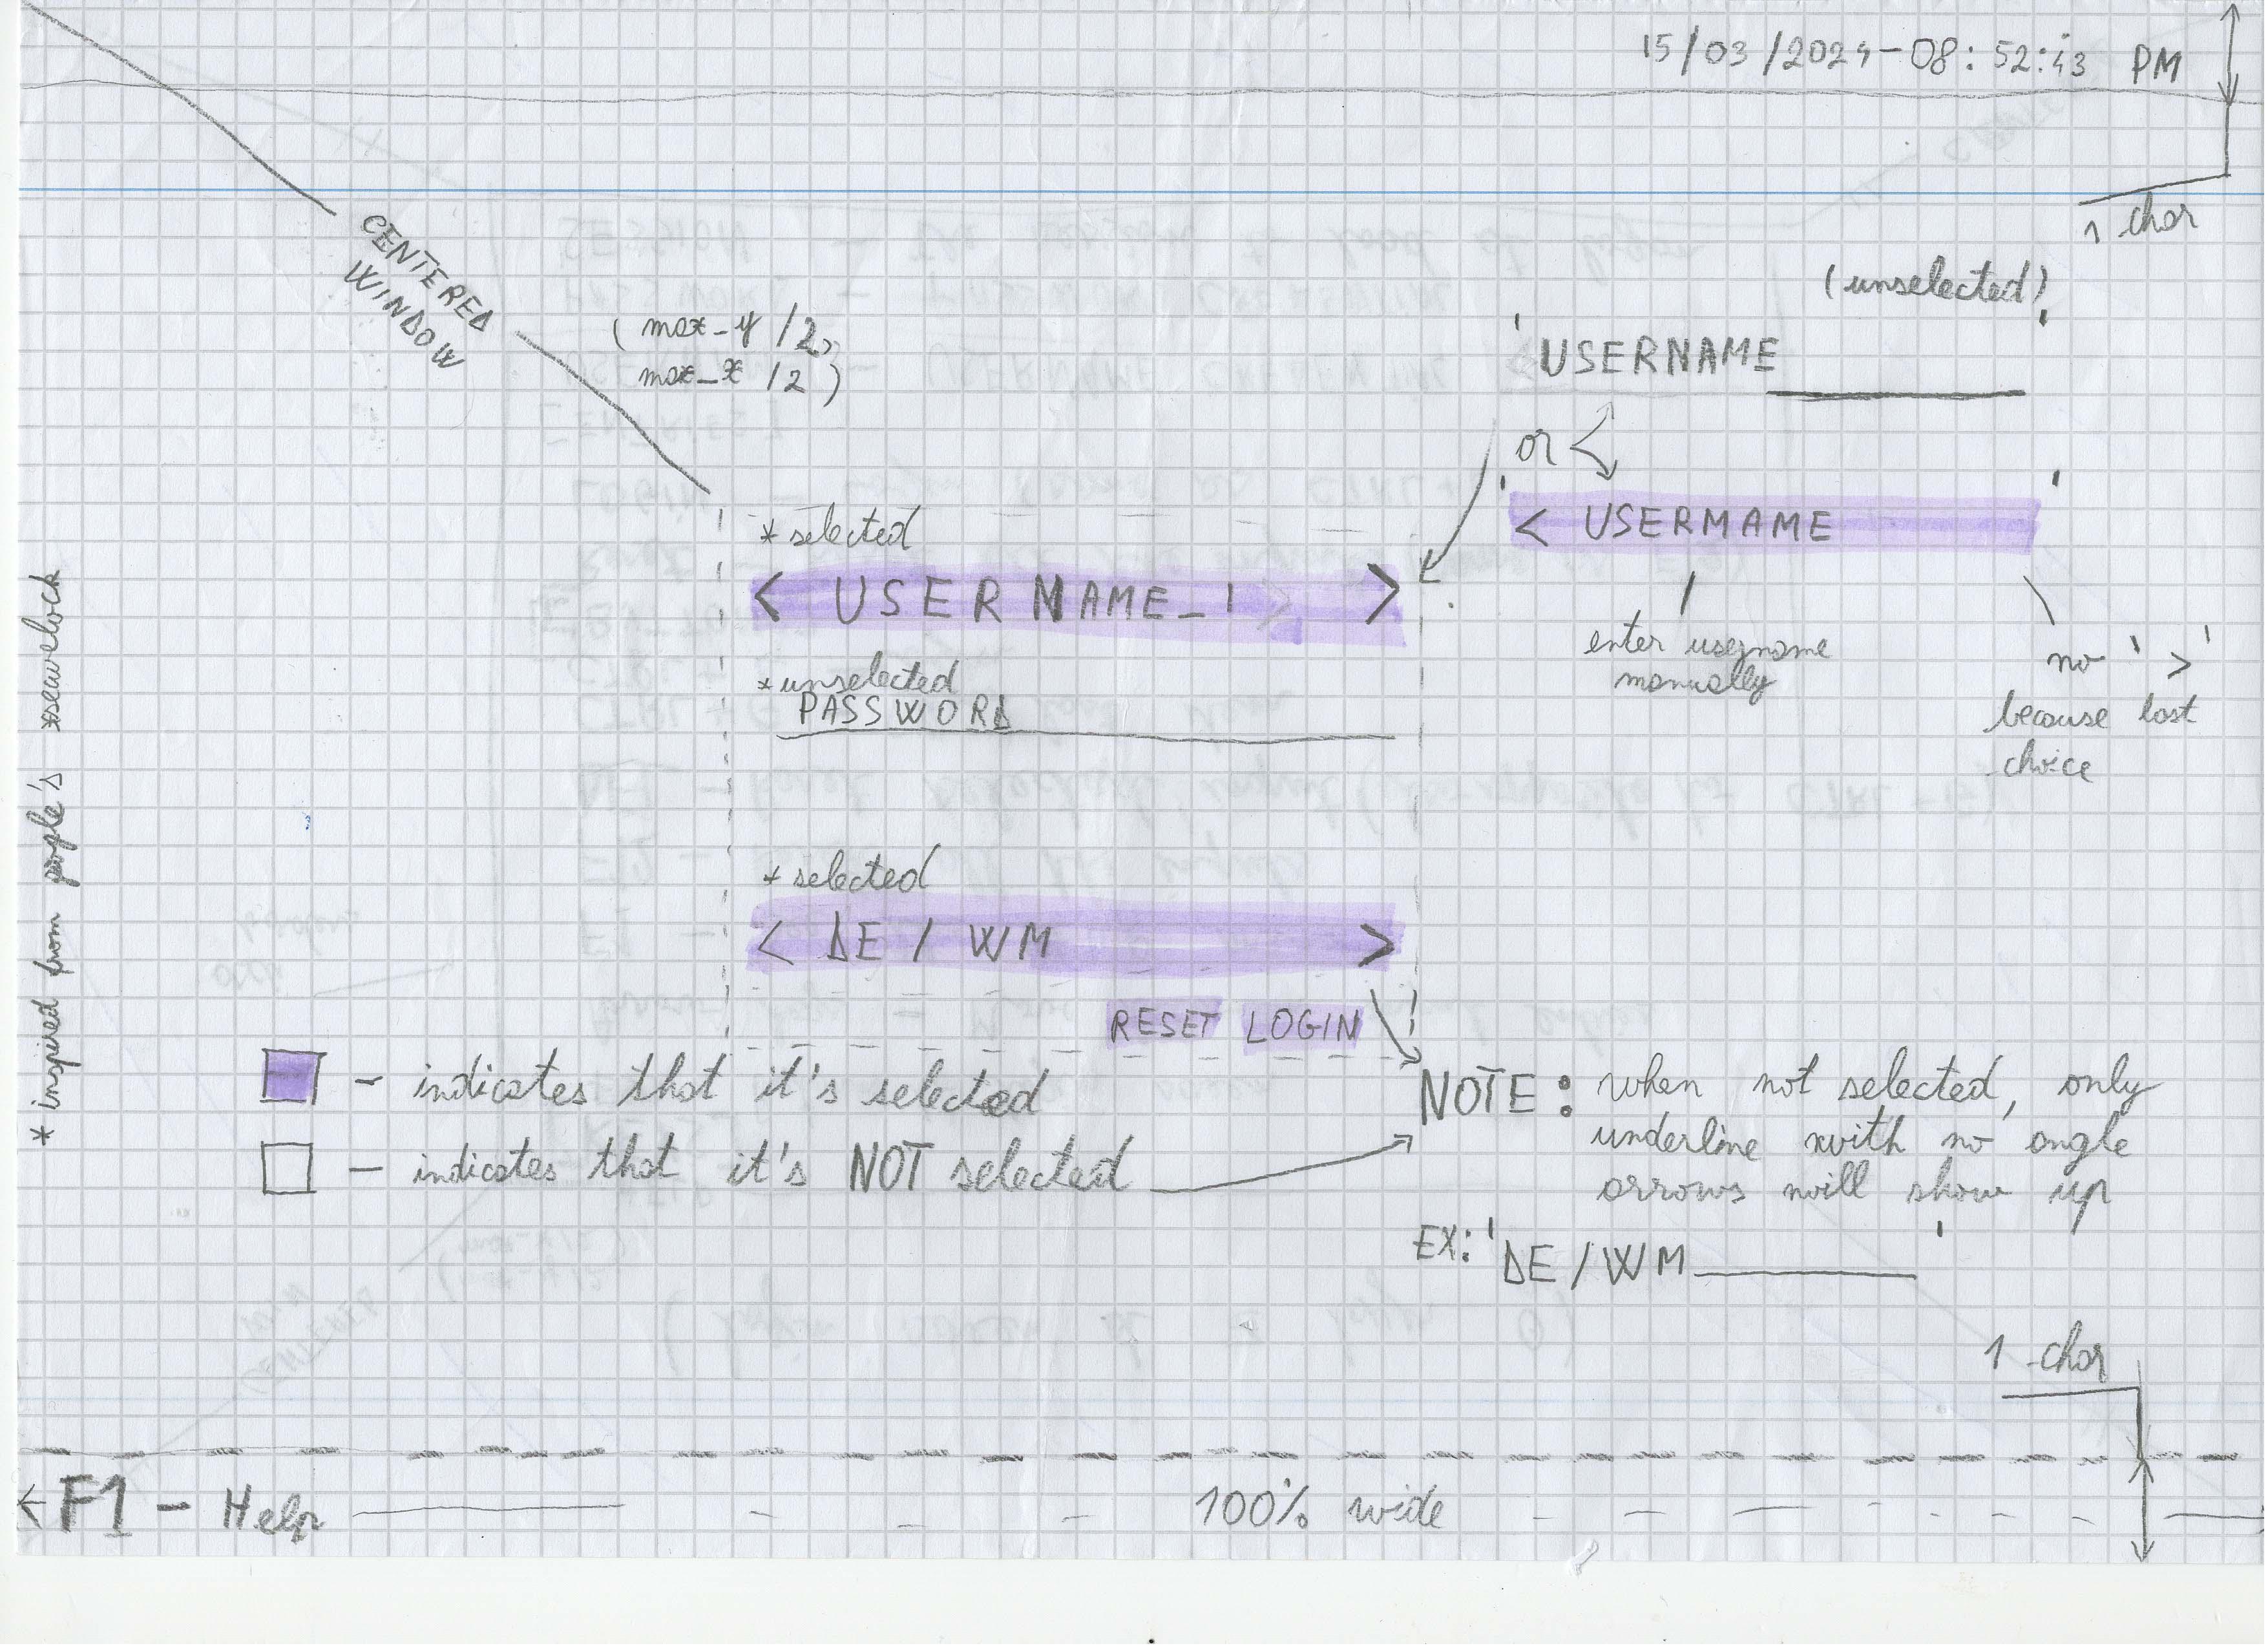 15/03/2024-08:52:43 PM
1 char
CENTERED
WINDOW
( max_y /2,
max_x /2 )
(unselected)
' USERNAME________ '
or
' < USERMAME '
enter username
manually
no ' > '
because last
choice
* selected
< USERNAME_1 >
* unselected
PASSWORD
* selected
< DE / WM >
RESET LOGIN
* inspired from people's
- indicates that it's selected
- indicates that it's NOT selected
NOTE: when not selected, only
underline with no angle
arrows will show up
EX: ' DE / WM________ '
1 char
F1 - Help
100% wide